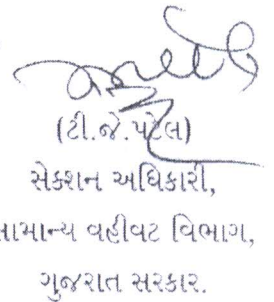 (ટી.જે.પટેલ)
સેક્શન અધિકારી,
સામાન્ય વહીવટ વિભાગ,
ગુજરાત સરકાર.